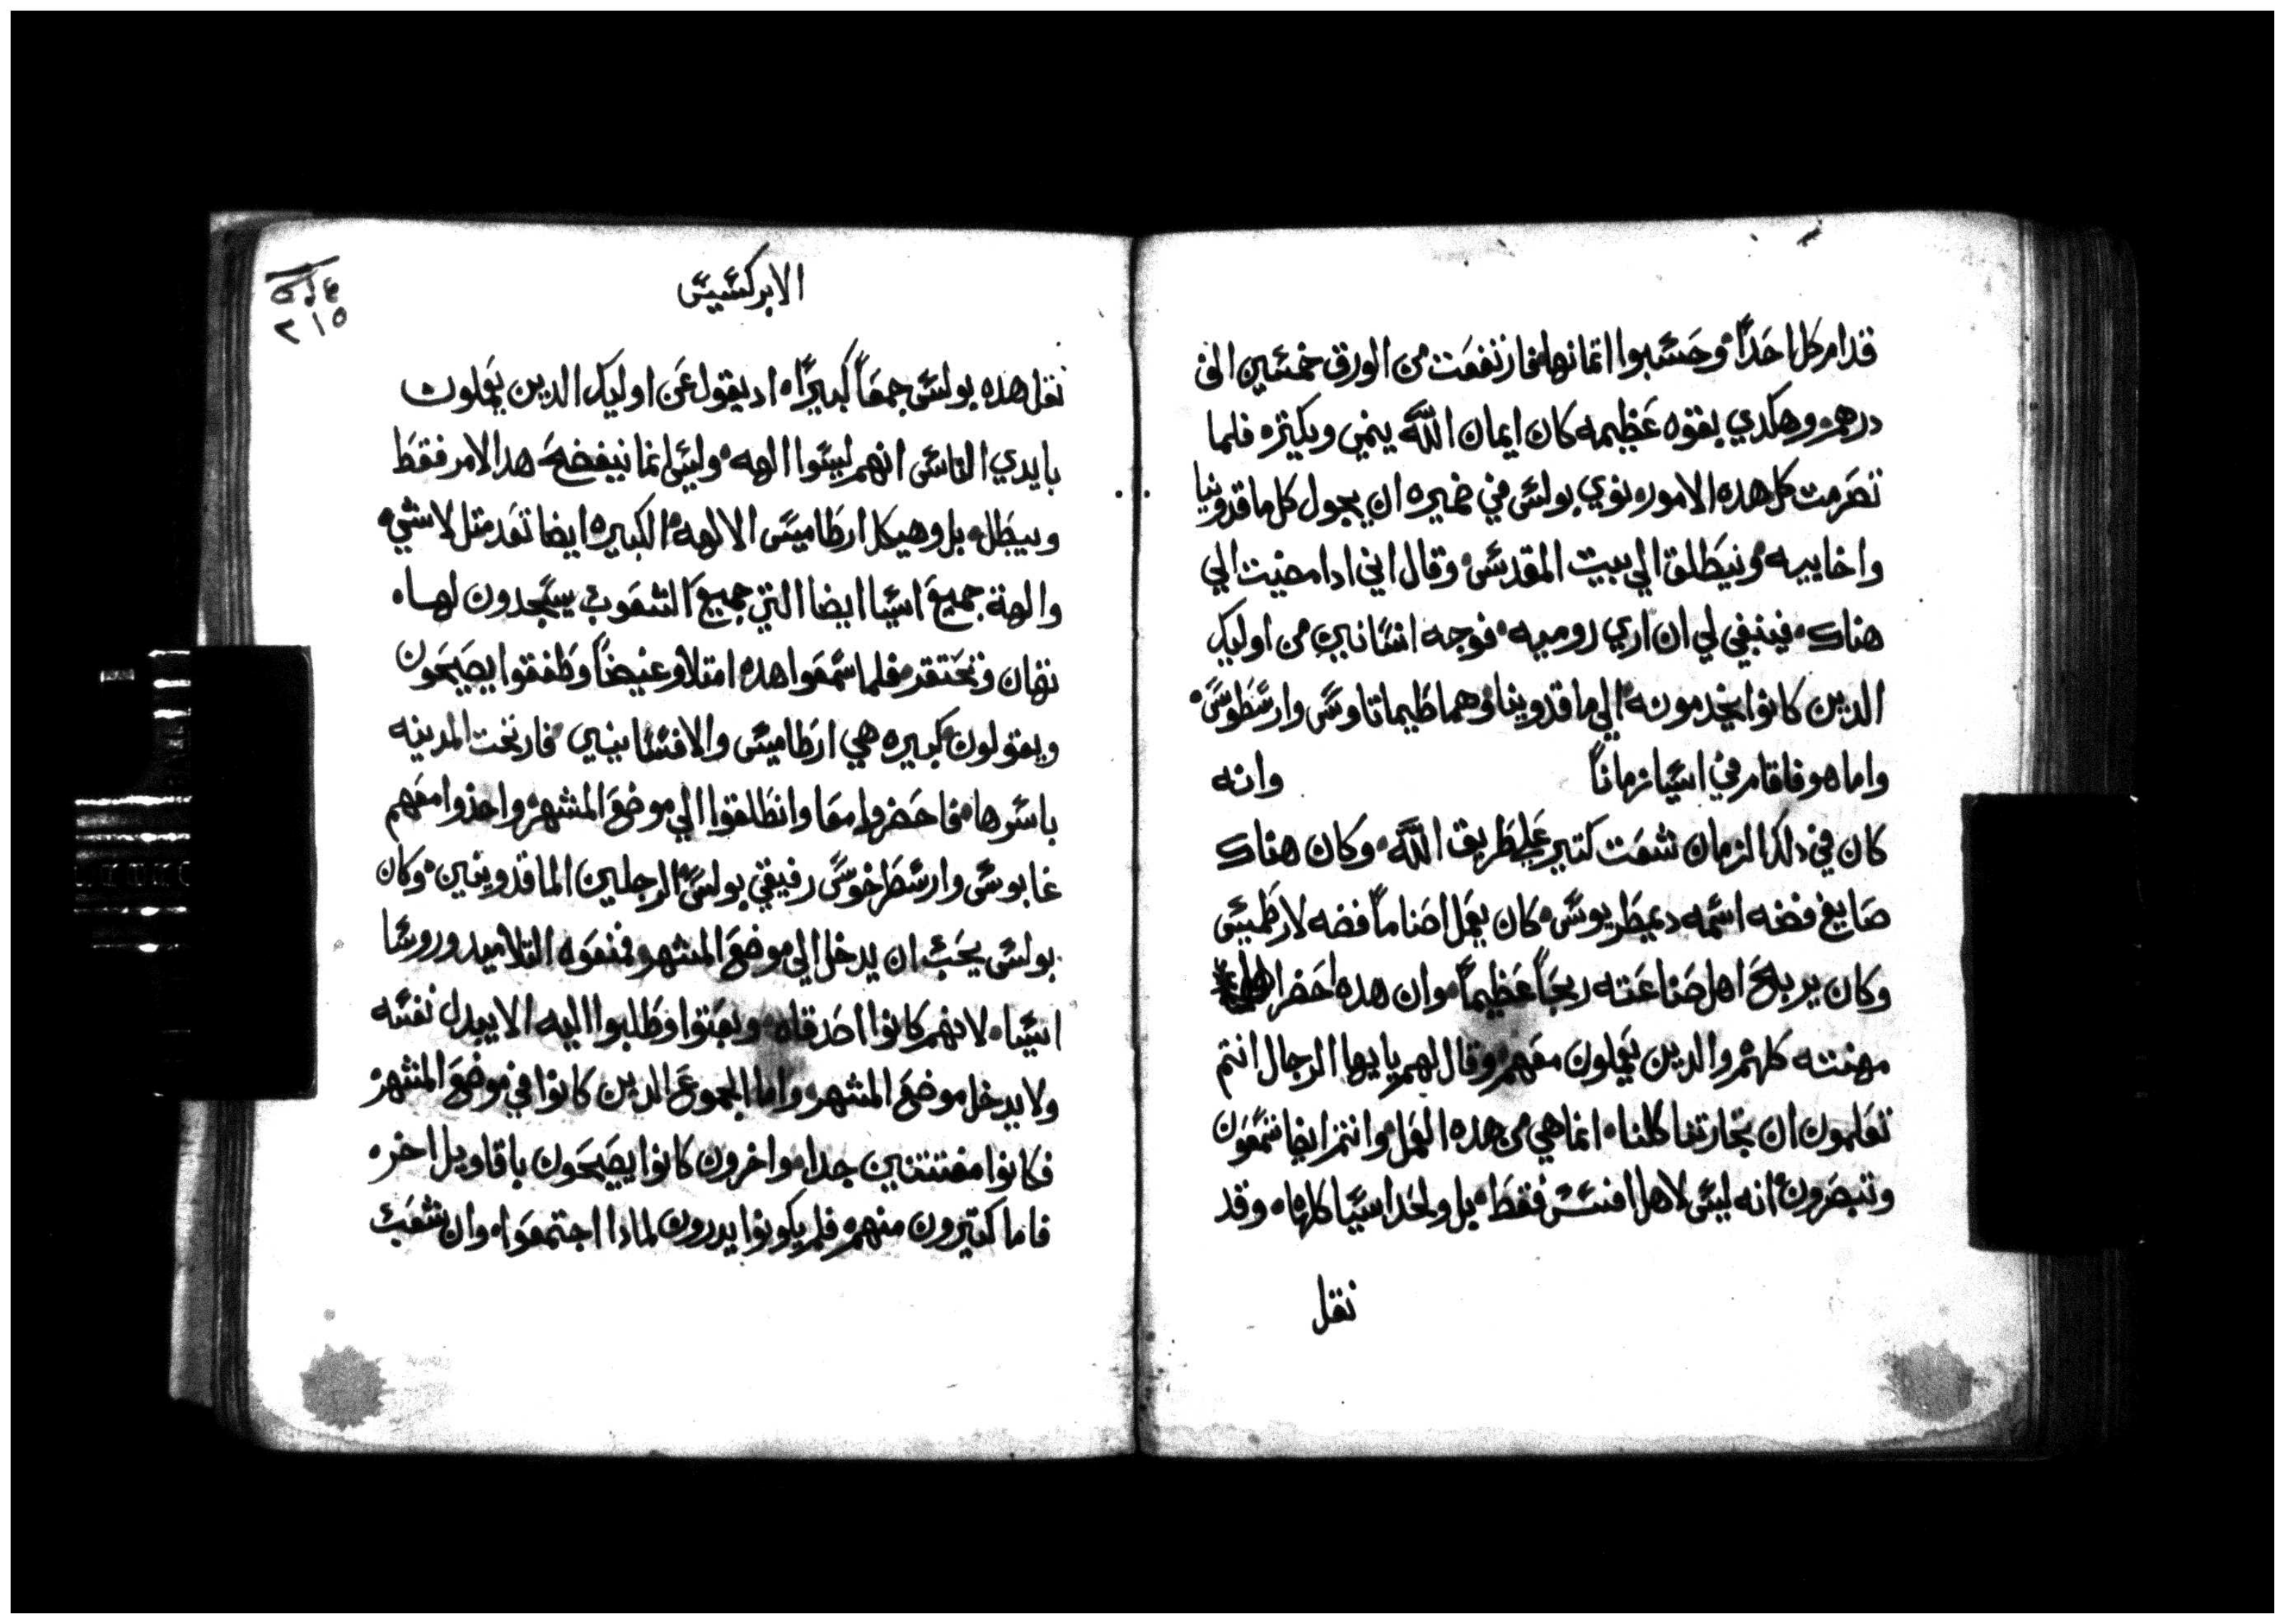 قدام كل احدًا وحسبوا اتمانها فارتفعت من الورق خمسين الف
درهم وهكدي بقوه عظيمه كان ايمان الله ينمي ويكتره فلما
تصرمت كل هده الاموره نوي بولس في ضميره ان يجول كل ماقدونيا
واخاييه وينطلق الي بيت المقدس وقال اني ادا مضيت الي
هناك فينبغي لي ان اري روميه فوجه انسانين من اوليك
الدين كانوا يخدمونه الي ماقدونيا وهما طيماتاوس وارسطوس
واما هو فاقام في اسيا زمانًا وانه
كان في دلك الزمان شغب كتير علي طريق الله وكان هناك
صايغ فضه اسمه ديميطريوس كان يعمل اصنامًا فضه لارطميس
وكان يربح اهل صناعته ربحًا عظيمًا وان هده احضر اهل
مهنته كلهم والدين يعملون معهم وقال لهم يايها الرجال انتم
تعلمون ان تجارتنا كلناه انما هي من هده العمل وانتم ايضا تسمعون
وتبصرون انه ليس لاهل افسس فقط بل ولحد اسيا كلهاه وقد
نقل
الابركسيس
٢١٥
نقل هده بولس جمعًا كبيرًاه اد يقول عن اوليك الدين يعملون
بايدي الناس انهم ليسوا الهه وليس انما نيفضح هدا الامر فقط
ويبطل بل وهيكل ارطاميس الالهه الكبيره ايضا تعد مثل لا شيء
والهة جميع اسيا ايضا التي جميع الشعوب يسجدون لهاه
تهان وتحتقر فلما سمعوا هده امتلاو غيضًا وطفقوا يصيحون
ويقولون كبيره هي ارطاميس والافسسانيين فارتجت المدينه
باسرها فاحضروا معا وانطلقوا الي موضع المشهره واخذوا معهم
غايوس وارسطرخوس رفيقي بولس الرجلين الماقدونيين وكان
بولس يحب ان يدخل الي موضع المشهر فمنعوه التلاميد وروسا
اسياه لانهم كانوا اصدقاه وبعتوا وطلبوا اليه الا يبدل نفسه
ولا يدخل موضع المشهره واما الجموع الدين كانوا في موضع المشهره
فكانوا مفتتنين جداه واخرون كانوا يصيحون باقاويل اخره
فاما كتيرون منهم فلم يكونوا يدرون لمادا اجتمعواه وان شعب